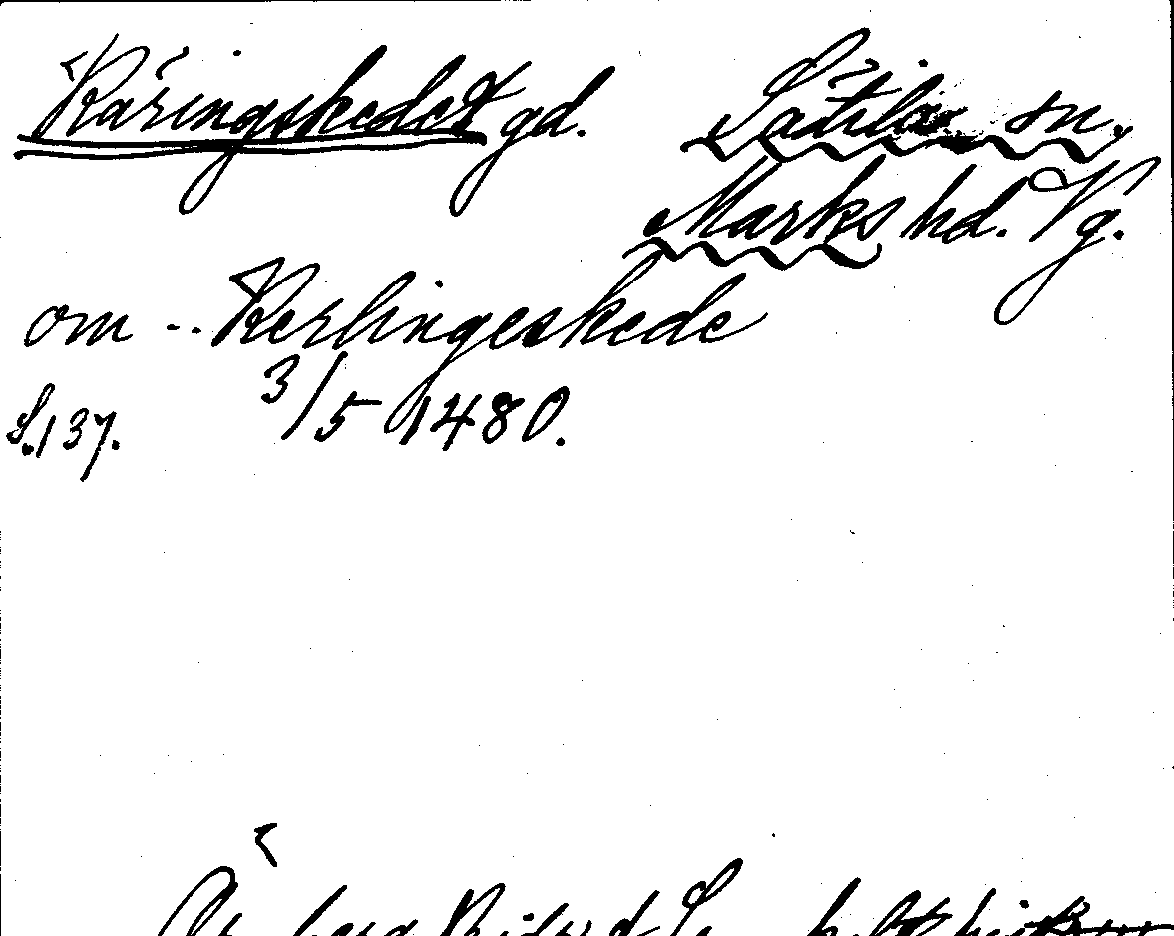 Käringskedet gd. Sätila sn.
Marks hd. Vg.
om -- Kerlingeskede
S. 137. 3/5 1480.